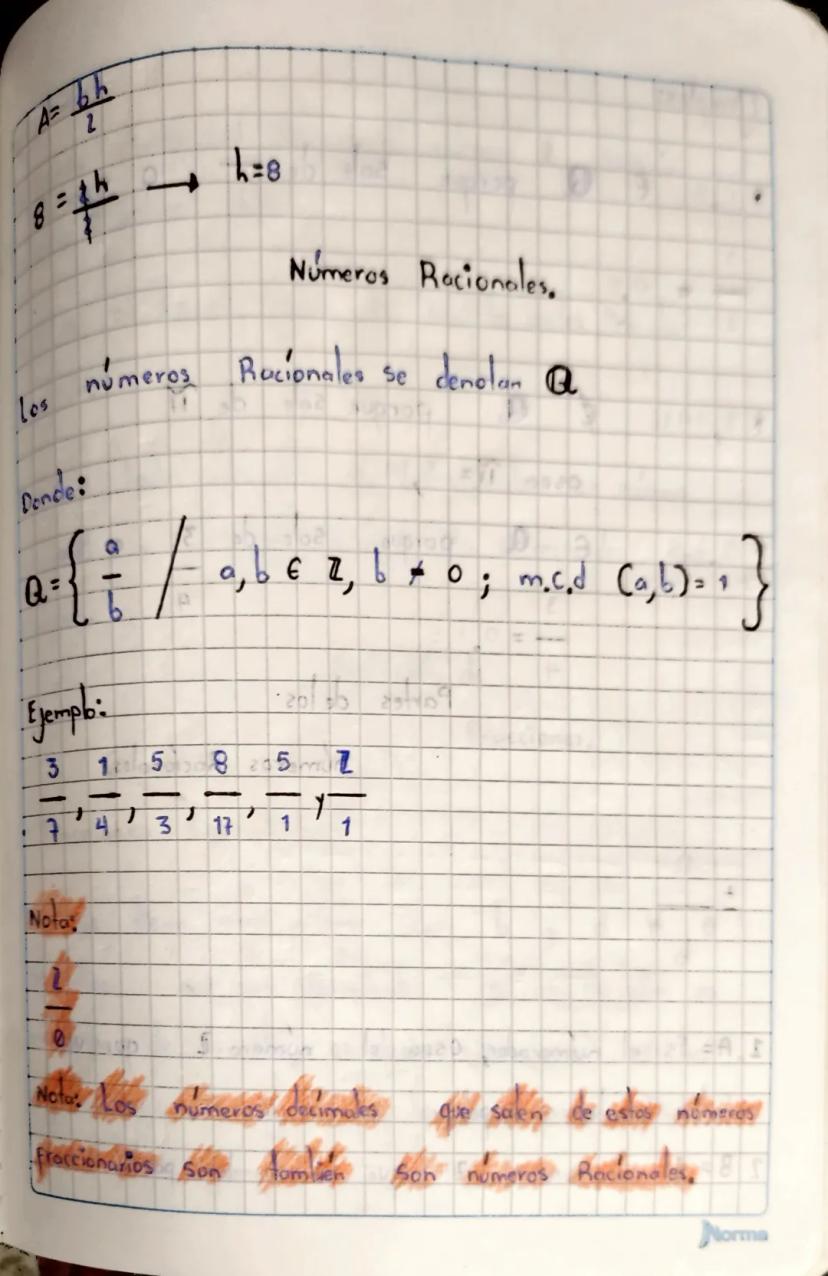 A= bh/2
8 = 2h/2 → h=8
Números Racionales.
Los números Racionales se denotan Q
Donde:
Q = { a/b / a, b ∈ Z, b ≠ 0 ; m.c.d (a,b) = 1 }
Ejemplo:
3/7, 1/4, 5/3, 8/17, 5/1 y 2/1
Nota:
2/0
Nota: Los números decimales que salen de estos números
fraccionarios son también son números Racionales.
Norma